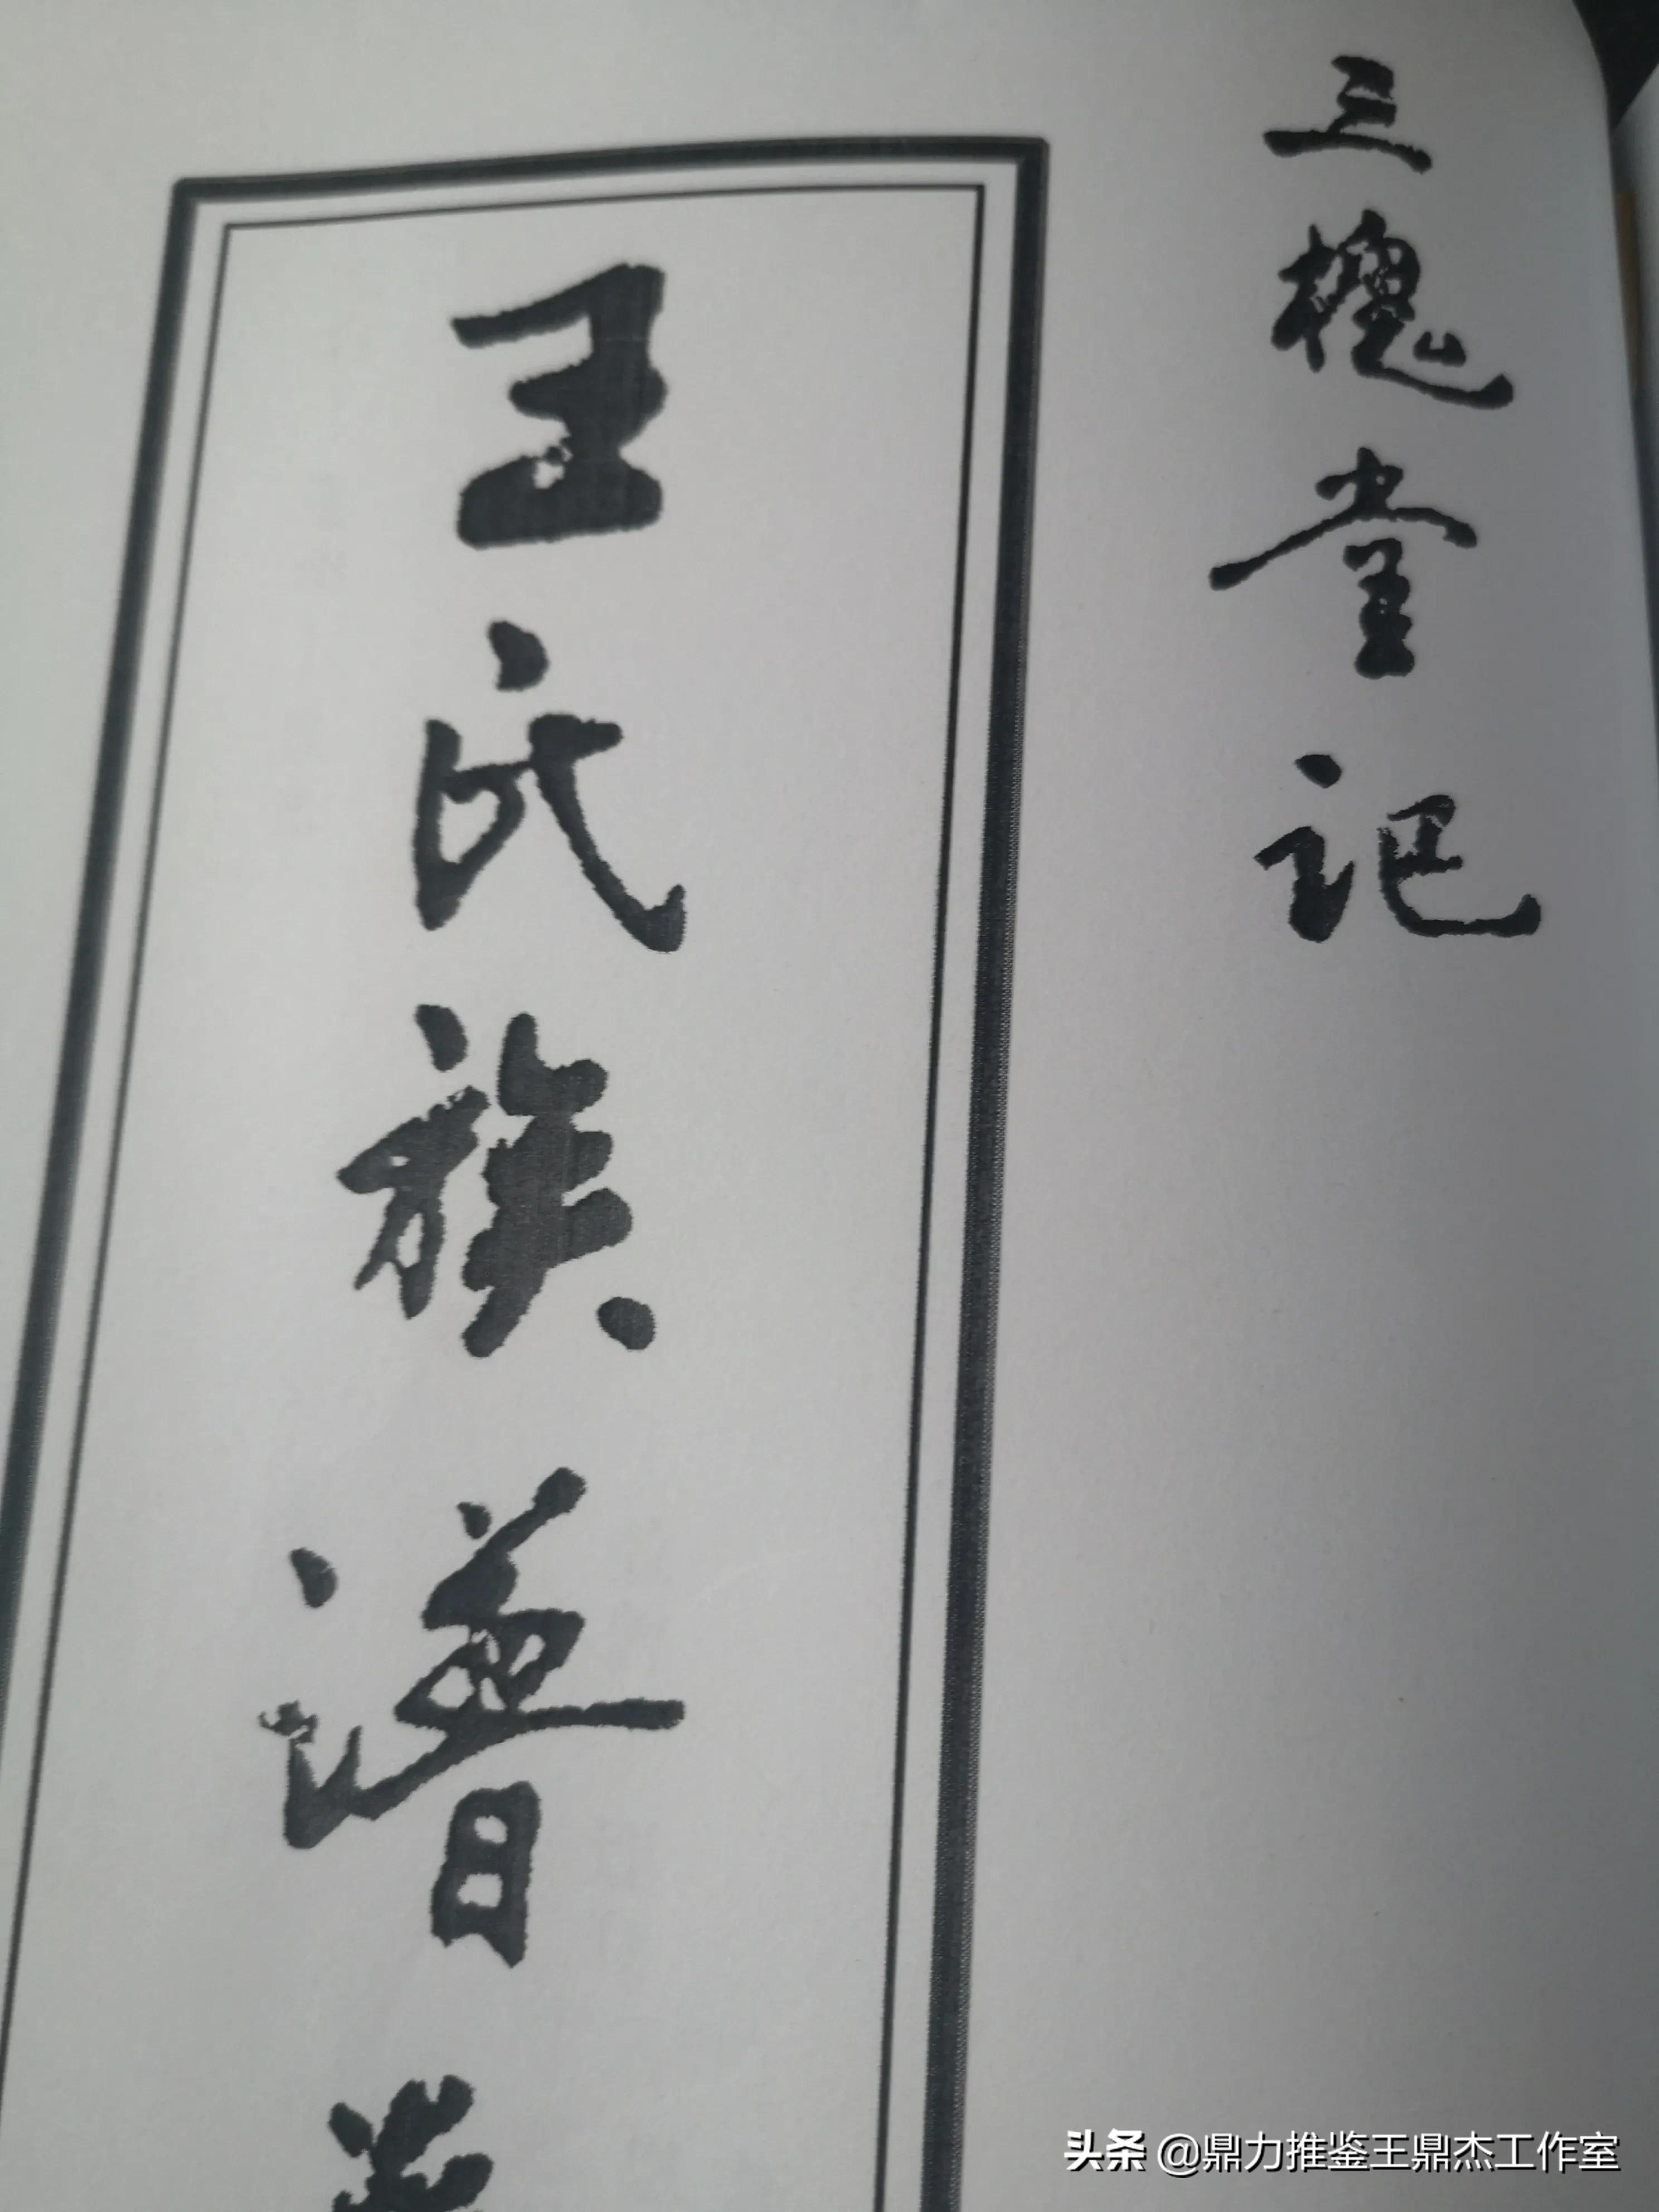 三槐堂记
王氏族谱
头条 @鼎力推鉴王鼎杰工作室